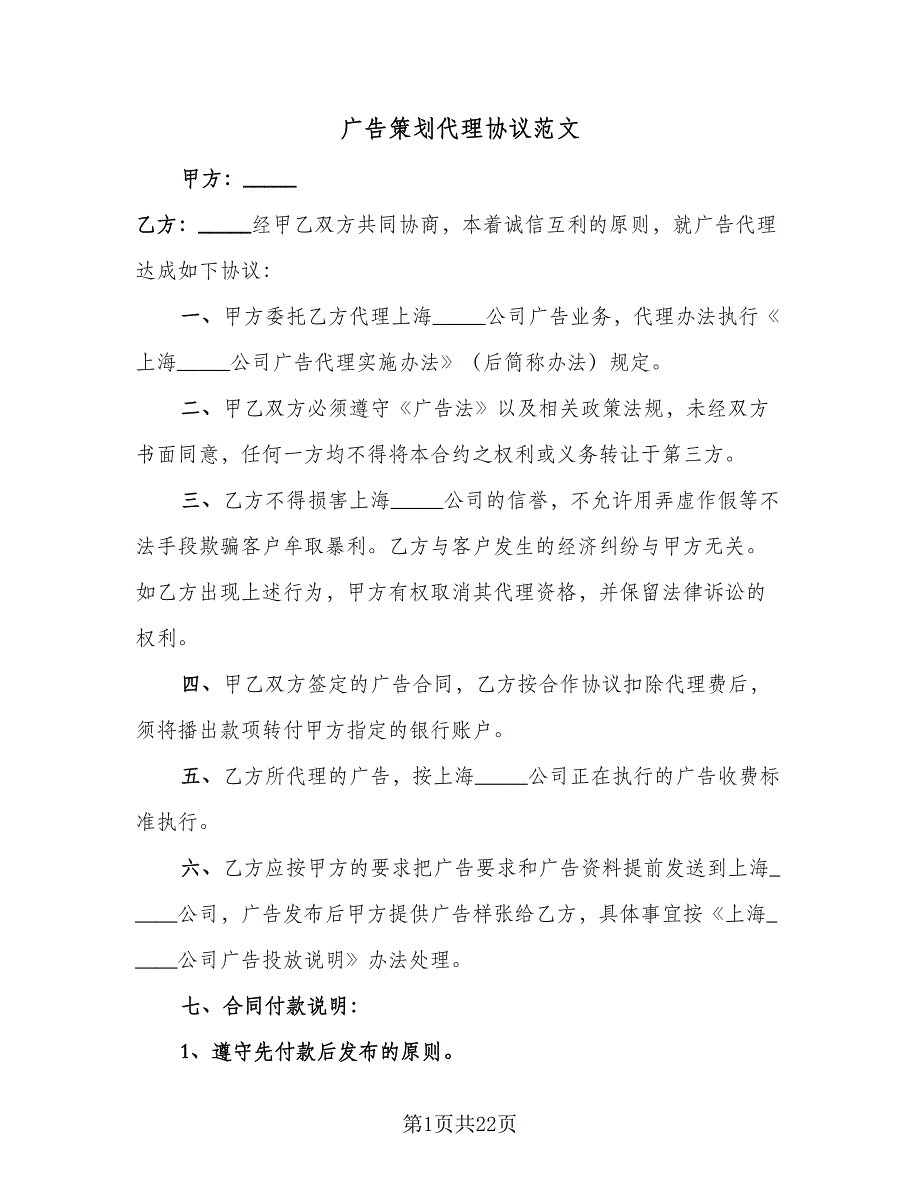 广告策划代理协议范文
甲方：_____
乙方：_____经甲乙双方共同协商，本着诚信互利的原则，就广告代理
达成如下协议：
一、甲方委托乙方代理上海_____公司广告业务，代理办法执行《
上海_____公司广告代理实施办法》（后简称办法）规定。
二、甲乙双方必须遵守《广告法》以及相关政策法规，未经双方
书面同意，任何一方均不得将本合约之权利或义务转让于第三方。
三、乙方不得损害上海_____公司的信誉，不允许用弄虚作假等不
法手段欺骗客户牟取暴利。乙方与客户发生的经济纠纷与甲方无关。
如乙方出现上述行为，甲方有权取消其代理资格，并保留法律诉讼的
权利。
四、甲乙双方签定的广告合同，乙方按合作协议扣除代理费后，
须将播出款项转付甲方指定的银行账户。
五、乙方所代理的广告，按上海_____公司正在执行的广告收费标
准执行。
六、乙方应按甲方的要求把广告要求和广告资料提前发送到上海_
____公司，广告发布后甲方提供广告样张给乙方，具体事宜按《上海_
____公司广告投放说明》办法处理。
七、合同付款说明：
1、遵守先付款后发布的原则。
第1页共22页